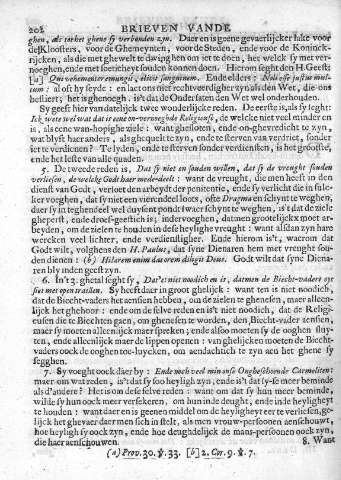 202 BRIEVEN VANDE
ghen, als tot het ghene sy verbonden zyn. Daer en is gene gevaerlijcker sake voor
de Kloosters, voor de Ghemeynten, voor de Steden, ende voor de Koninck-
rijcken, als die met ghewelt te dwinghen om iet te doen, het welck sy met ver-
noeghen, ende met soeticheyt souden konnen doen. Hierom seght den H. Geest:
[a] Qui vehementer emungit, elicit sanguinem. Ende elders: Noli esse justus mul-
tum: al oft hy seyde: en laet ons niet rechtveerdigher zyn als den Wet, die ons
bestiert; het is ghenoegh, is't dat de Ondersaeten den Wet wel onderhouden.
Sy geeft hier van datelijck twee wonderlijcke reden. De eerste is, als sy leght:
Ick weet wel wat dat is een on-vernoeghde Religieuse, de welcke niet veel minder en
is, als eene wan-hopighe ziele: want ghestoort, ende on-ghevredicht te zyn,
wat blyft haer anders, als ghequelt te zyn, ende te sterven van verdriet, sonder
iet te verdienen? Te lyden, ende te sterven sonder verdiensten, is het grootste,
ende het leste van alle quaden.
5. De tweede reden is, Dat sy niet en souden willen, dat sy de vreught souden
verliesen, de welcke Godt haer mededeelt: want de vreught, die men heeft in den
dienst van Godt, verloet den arbeydt der penitentie, ende sy verlicht die in sulc-
ker voeghen, dat sy niet een vierendeel loots, ofte Dragma en schynt te weghen,
daer sy in teghendeel wel duysent pondt swaer schynt te weghen, is't dat de ziele
ghepersst, ende droef-gheestich is; inder voeghen, dat men grootelijckx moet ar-
beyden, om de zielen te houden in dese heylighe vreught: want als dan zyn haere
wercken veel lichter, ende verdienstigher. Ende hieron is't, waerom dat
Godt wilt, volghens den H. Paulus, dat syne Dienaren hem met vreught sou-
den dienen: (b) Hilarem enim datorem diligit Deus. Godt wilt dat syne Diena-
ren bly inden geest zyn.
6. In't 3. ghetal seght sy, Dat'et niet noodich en is, dat men de Biecht-vaders oyt
sie met open trallien. Sy heeft daer in groot ghelijck: want ten is niet noodich,
dat de Biecht-vaders het aensien hebben, om de zielen te ghenesen, maer alleen-
lijck het ghehoor: ende om de selve reden en is't niet noodich, dat de Reli-
gieusen die te Biechten gaen, om ghenesen te worden, den Biecht-vader aensien,
maer sy moeten alleenlijck aenspreken; ende alsoo moeten sy de ooghen sluy-
ten, ende alleenlijck maer de lippen openen: van ghelijcken moeten de Biecht-
vaders oock de ooghen toe-luycken, om aendachtich te zyn aen het ghene sy
segghen.
7. Sy voeght oock daer by: Ende noch veel min onse Ongheschoende Carmeliten:
maer om wat reden, is't dat sy soo heyligh zyn, ende is't dat sy-se meer beminde
als d'andere? Het is om dese selve reden: want om dat sy hun meer beminde,
wilde sy hun oock meer versekeren, om hun in de deught, ende in de heyligheyt
te houden: want daer en is geenen middel om de heyligheyt eer te verliesen, ge-
lijck het ghevaer daer men sich in stelt, als men vrouw-persoonen aenschouwt,
hoe heyligh sy oock zyn, ende hoe deughdelijck de mans-persoonen oock zyn,
die haer aenschouwen.
8. Want
(a) Prov. 30. ℣. 33. [b] 2. Cor. 9. ℣. 7.